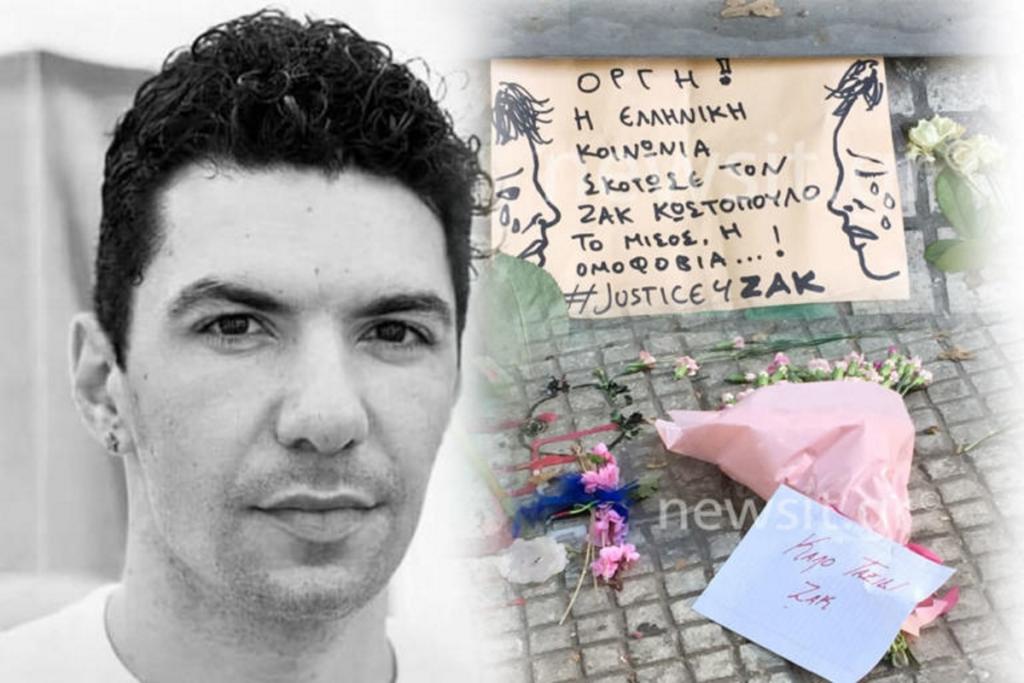 ΟΡΓΗ!
Η ΕΛΛΗΝΙΚΗ
ΚΟΙΝΩΝΙΑ
ΣΚΟΤΩΣΕ ΤΟΝ
ΖΑΚ ΚΩΣΤΟΠΟΥΛΟ
ΤΟ ΜΙΣΟΣ, Η
ΟΜΟΦΟΒΙΑ...!
#JUSTICE4ΖΑΚ
newsit.gr
Καλο Ταξιδι
Ζακ